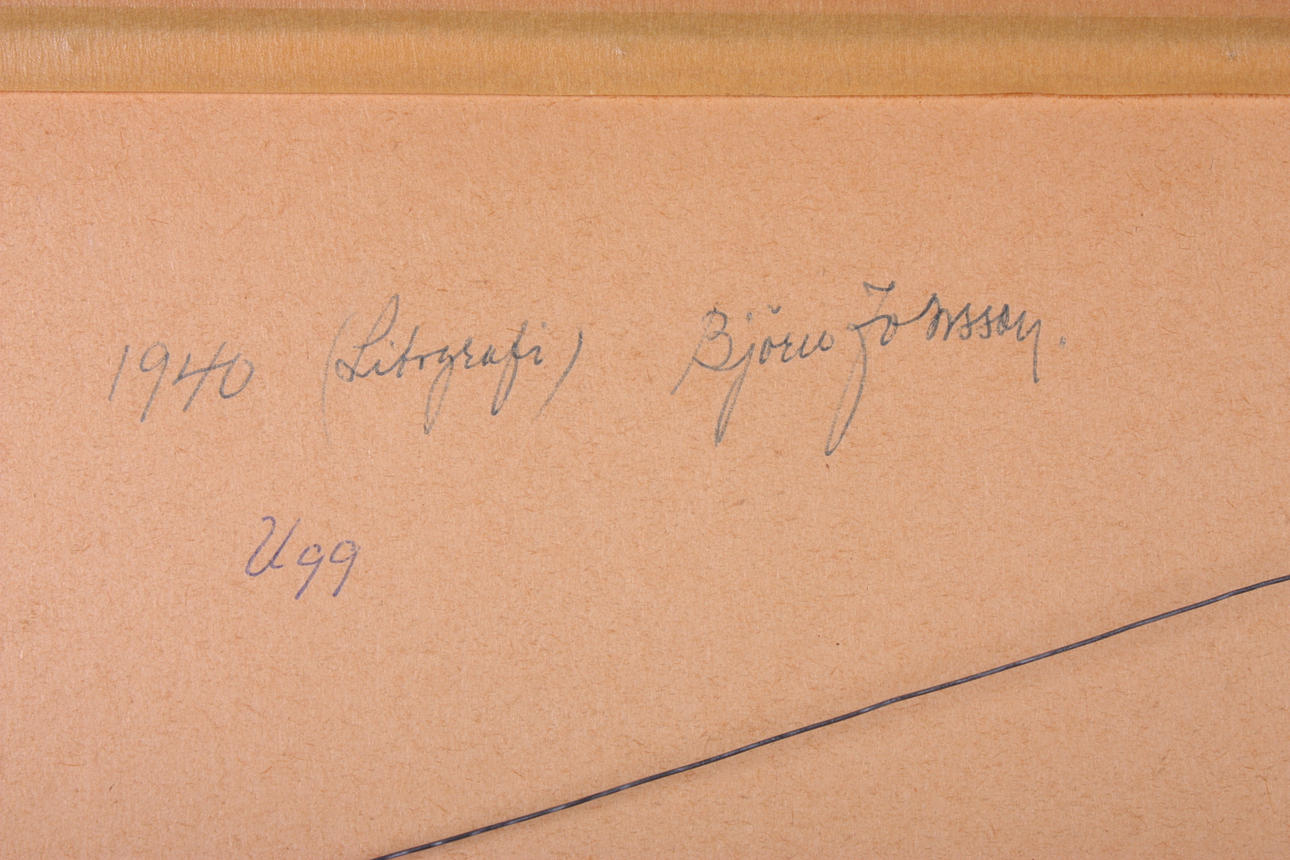 1940 (Litografi) Björn Jonsson.
Ugg